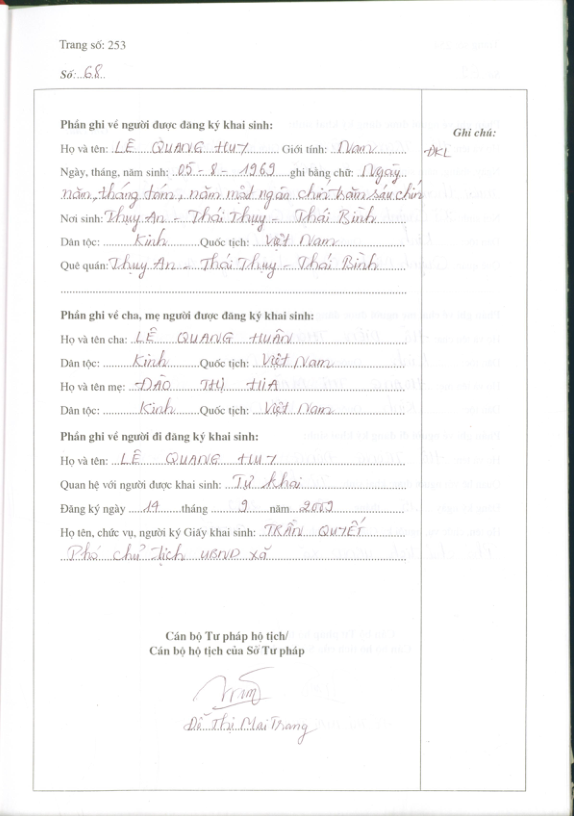 Trang số: 253
Số: 68
Ghi chú:
ĐKL
Phần ghi về người được đăng ký khai sinh:
Họ và tên: LÊ QUANG HUY Giới tính: Nam
Ngày, tháng, năm sinh: 05-8-1969 ghi bằng chữ: Ngày
năm, tháng tám, năm một ngàn chín trăm sáu chín
Nơi sinh: Thụy An - Thái Thụy - Thái Bình
Dân tộc: Kinh Quốc tịch: Việt Nam
Quê quán: Thụy An - Thái Thụy - Thái Bình
Phần ghi về cha, mẹ người được đăng ký khai sinh:
Họ và tên cha: LÊ QUANG HUÂN
Dân tộc: Kinh Quốc tịch: Việt Nam
Họ và tên mẹ: ĐÀO THỊ HIA
Dân tộc: Kinh Quốc tịch: Việt Nam
Phần ghi về người đi đăng ký khai sinh:
Họ và tên: LÊ QUANG HUY
Quan hệ với người được khai sinh: Tự khai
Đăng ký ngày 14 tháng 9 năm 2009
Họ tên, chức vụ, người ký Giấy khai sinh: TRẦN QUYẾT
Phó chủ tịch UBND xã
Cán bộ Tư pháp hộ tịch/
Cán bộ hộ tịch của Sở Tư pháp
Đỗ Thị Mai Trang